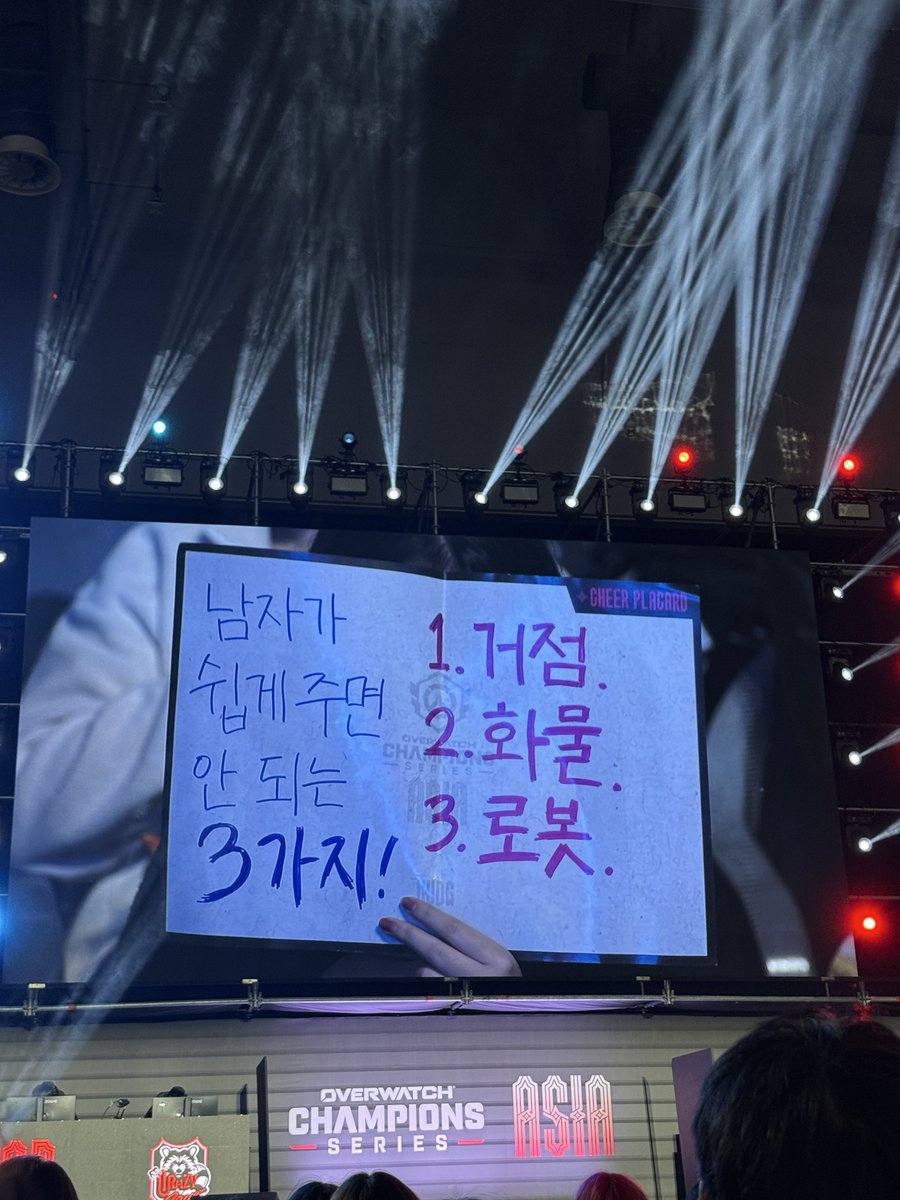 남자가
쉽게 주면
안 되는
3가지!
CHEER PLACARD
1. 거점.
2. 화물.
3. 로봇.
OVERWATCH
CHAMPIONS
SERIES
ASIA
OVERWATCH
CHAMPIONS
SERIES
ASIA
CRAZY